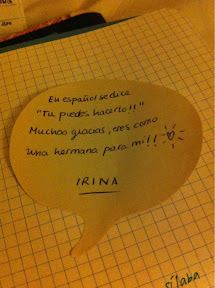 En español se dice
"Tu puedes hacerlo!!"
Muchas gracias, eres como
una hermana para mi!!
IRINA
sílaba